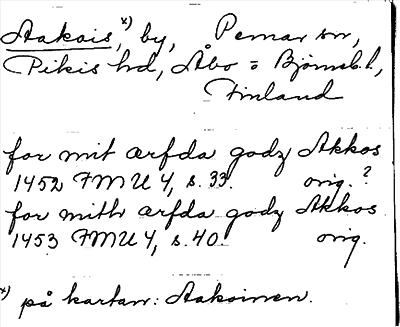 Aakois,ˣ⁾ by, Pemar sn,
Pikis hd, Åbo = Björneb. l,
Finland
for mit ærfda godz Akkos
1452 FMU 4, s. 33. orig.?
for mith ærfda godz Akkos
1453 FMU 4, s. 40. orig.
x) på kartan: Aakoinen.